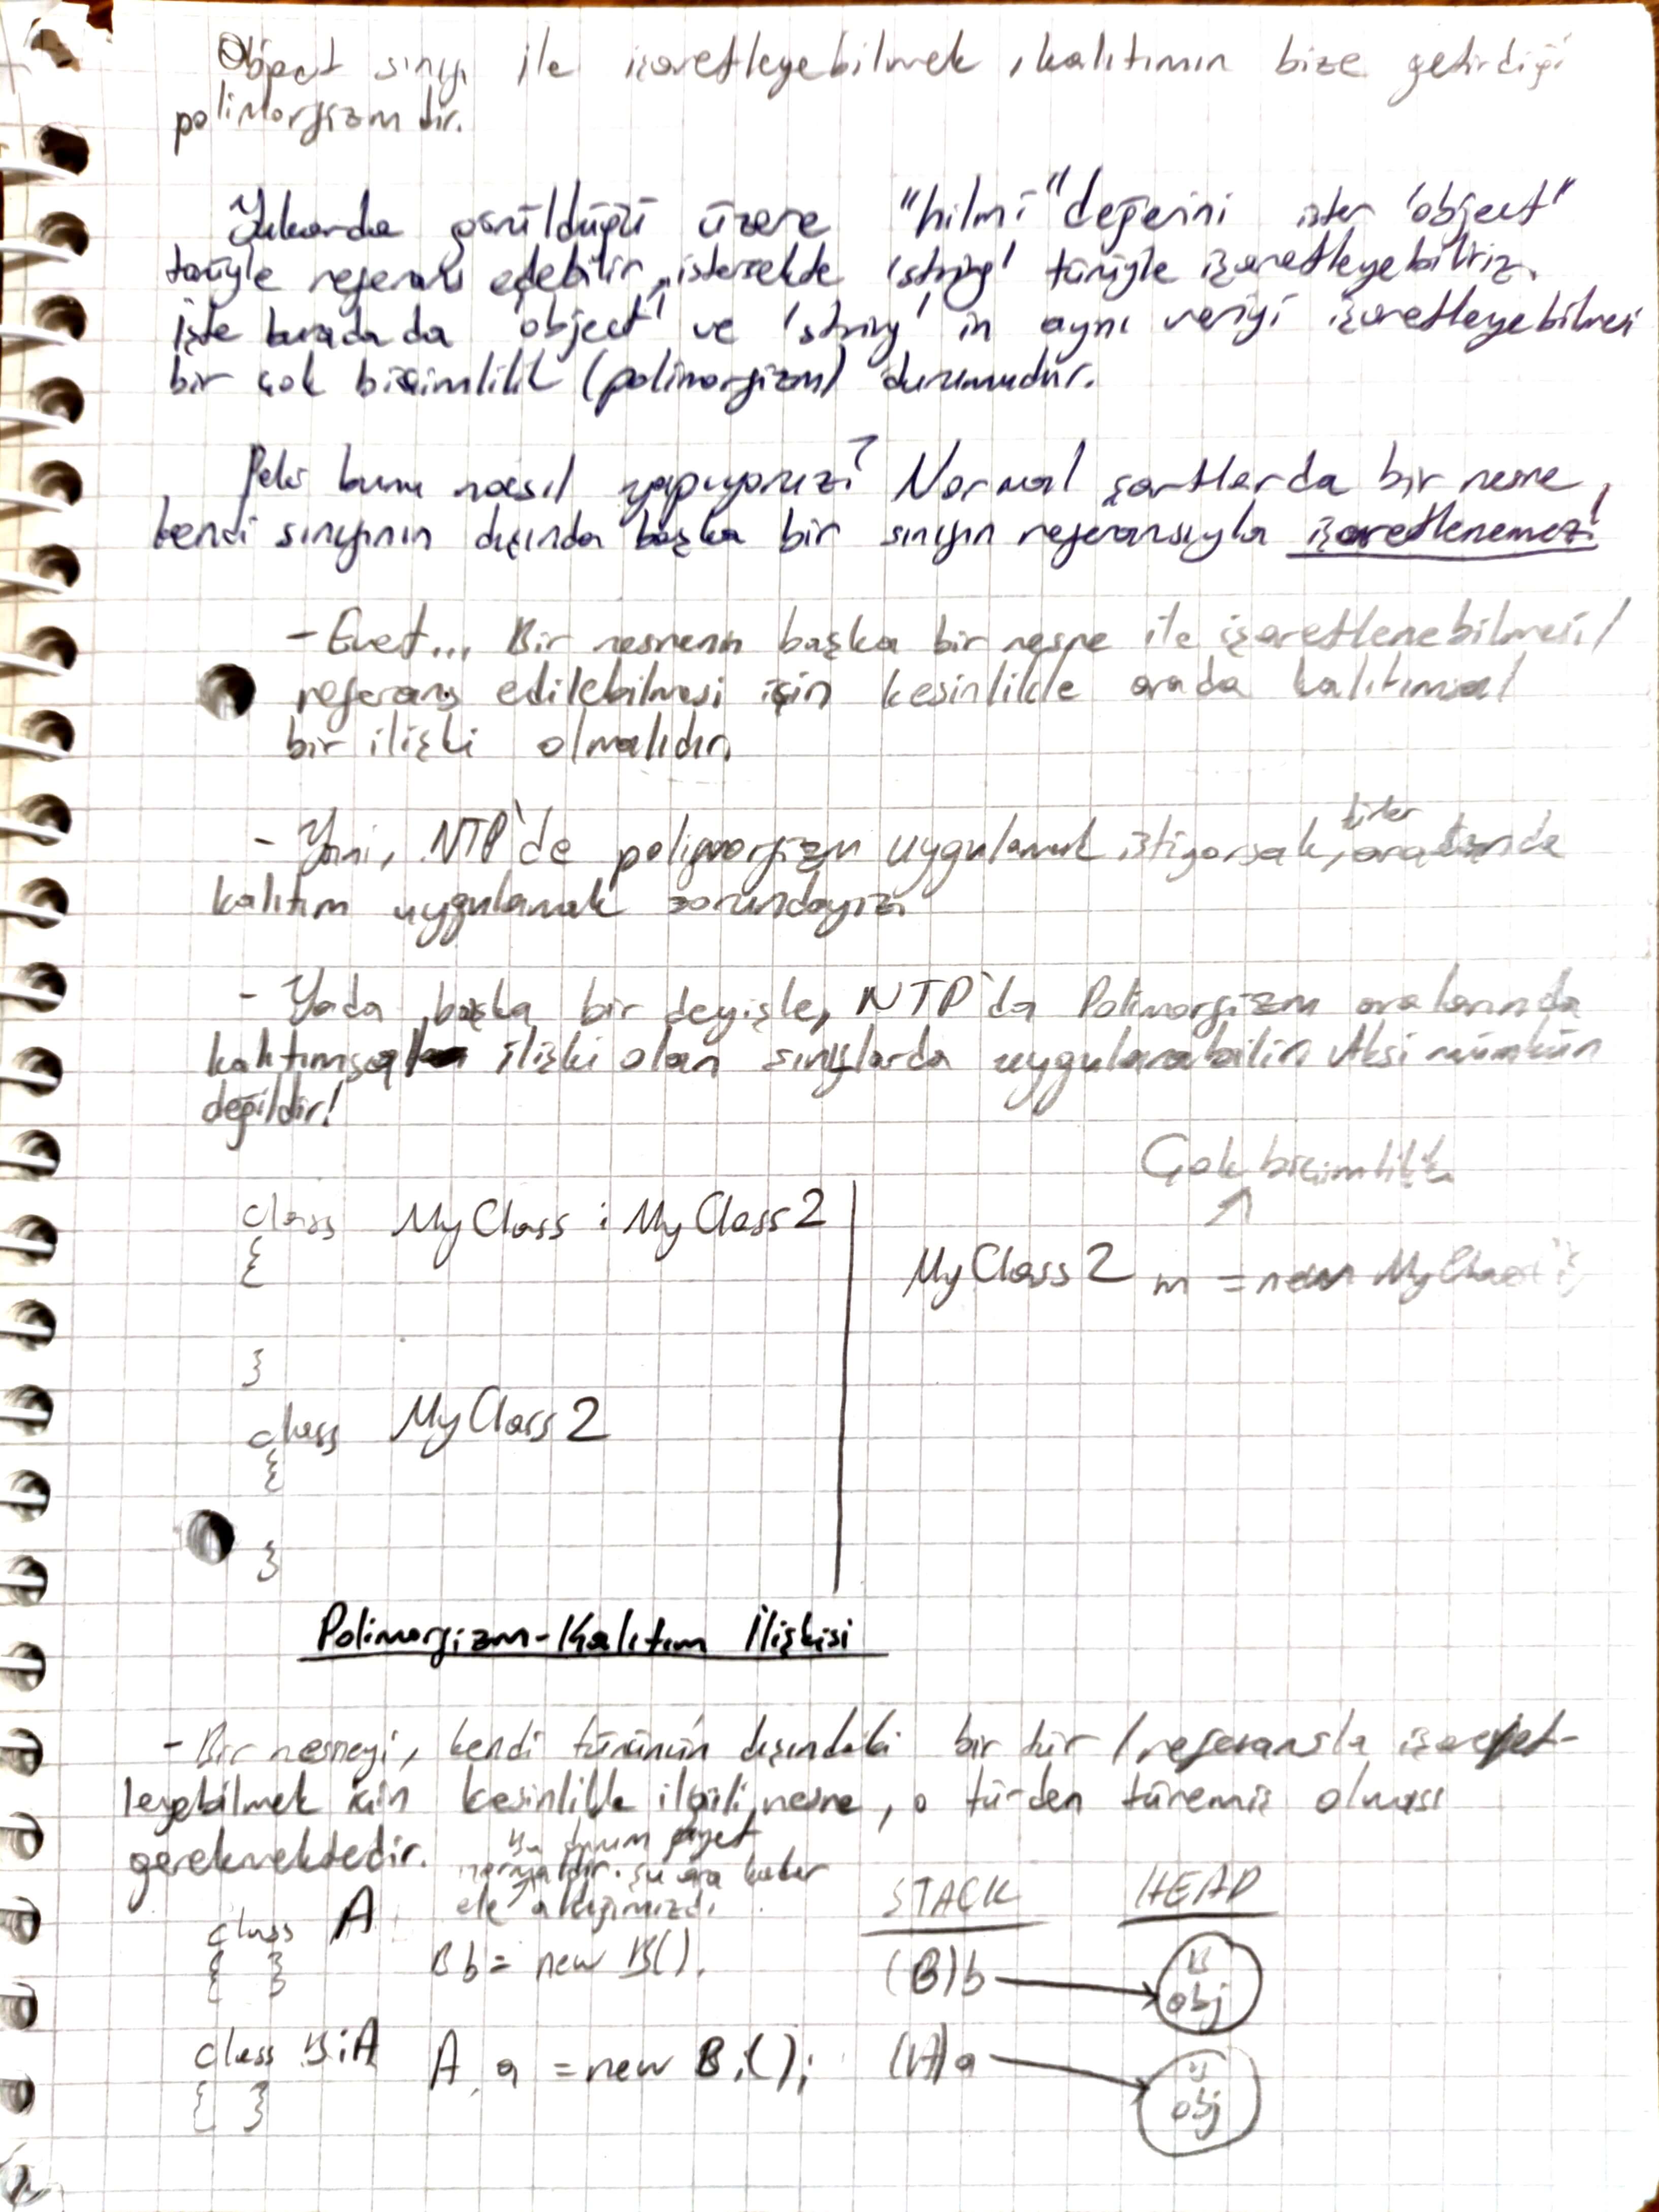 Object sınıfı ile işaretleyebilmek, kalıtımın bize getirdiği
polimorfizmdir.
Yukarda görüldüğü üzere "hilmi" değerini ister 'object'
türüyle referans edebilir, istersekte 'string' türüyle işaretleyebiliriz.
İşte burada da 'object' ve 'string' in aynı veriyi işaretleyebilmesi
bir çok biçimlilik (polimorfizm) durumudur.
Peki bunu nasıl yapıyoruz? Normal şartlarda bir nesne,
kendi sınıfının dışında başka bir sınıfın referansıyla işaretlenemez!
- Evet... Bir nesnenin başka bir nesne ile işaretlenebilmesi/
referans edilebilmesi için kesinlikle arada kalıtımsal
bir ilişki olmalıdır.
- Yani, NTP'de polimorfizm uygulamak istiyorsak, türler arasında
kalıtım uygulamak zorundayız.
- Yada başka bir deyişle, NTP'da Polimorfizm aralarında
kalıtımsal ilişki olan sınıflarda uygulanabilir. Aksi mümkün
değildir!
Çok biçimlilik
class MyClass : MyClass2
{
MyClass2 m = new MyClass();
}
class MyClass2
{
}
Polimorfizm-Kalıtım İlişkisi
- Bir nesneyi, kendi türünün dışındaki bir tür / referansla işaret-
leyebilmek için kesinlikle ilgili nesne, o türden türemiş olması
gerekmektedir.
Bu durum gayet
normaldir. şu ana kadar
ele aldığımızdı
STACK HEAP
class A
{ }
B b = new B().
(B)b
B
obj
class B:A
{ }
A a = new B();
(A)a
B
obj